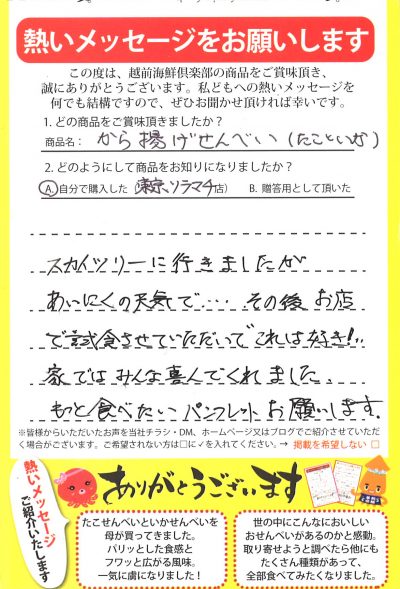 熱いメッセージをお願いします
この度は、越前海鮮倶楽部の商品をご賞味頂き、
誠にありがとうございます。私どもへの熱いメッセージを
何でも結構ですので、ぜひお聞かせ頂ければ幸いです。
1. どの商品をご賞味頂きましたか?
商品名: から揚げせんべい(たこといか)
2. どのようにして商品をお知りになりましたか?
A. 自分で購入した(東京ソラマチ店) B. 贈答用として頂いた
スカイツリーに行きましたが
あいにくの天気で… その後 お店
で試食させていただいてこれは好き!!
家ではみんな喜んでくれました。
もっと食べたい パンフレット お願いします。
※皆様からいただいたお声を当社チラシ・DM、ホームページ又はブログでご紹介させていただ
く場合がございます。ご希望されない方は□に✓を入れてください。→ 掲載を希望しない □
熱いメッセージ
ご紹介いたします
ありがとうございます
たこせんべいといかせんべいを
母が買ってきました。
パリッとした食感と
フワッと広がる風味。
一気に虜になりました!
世の中にこんなにおいしい
おせんべいがあるのかと感動。
取り寄せようと調べたら他にも
たくさん種類があって、
全部食べてみたくなりました。